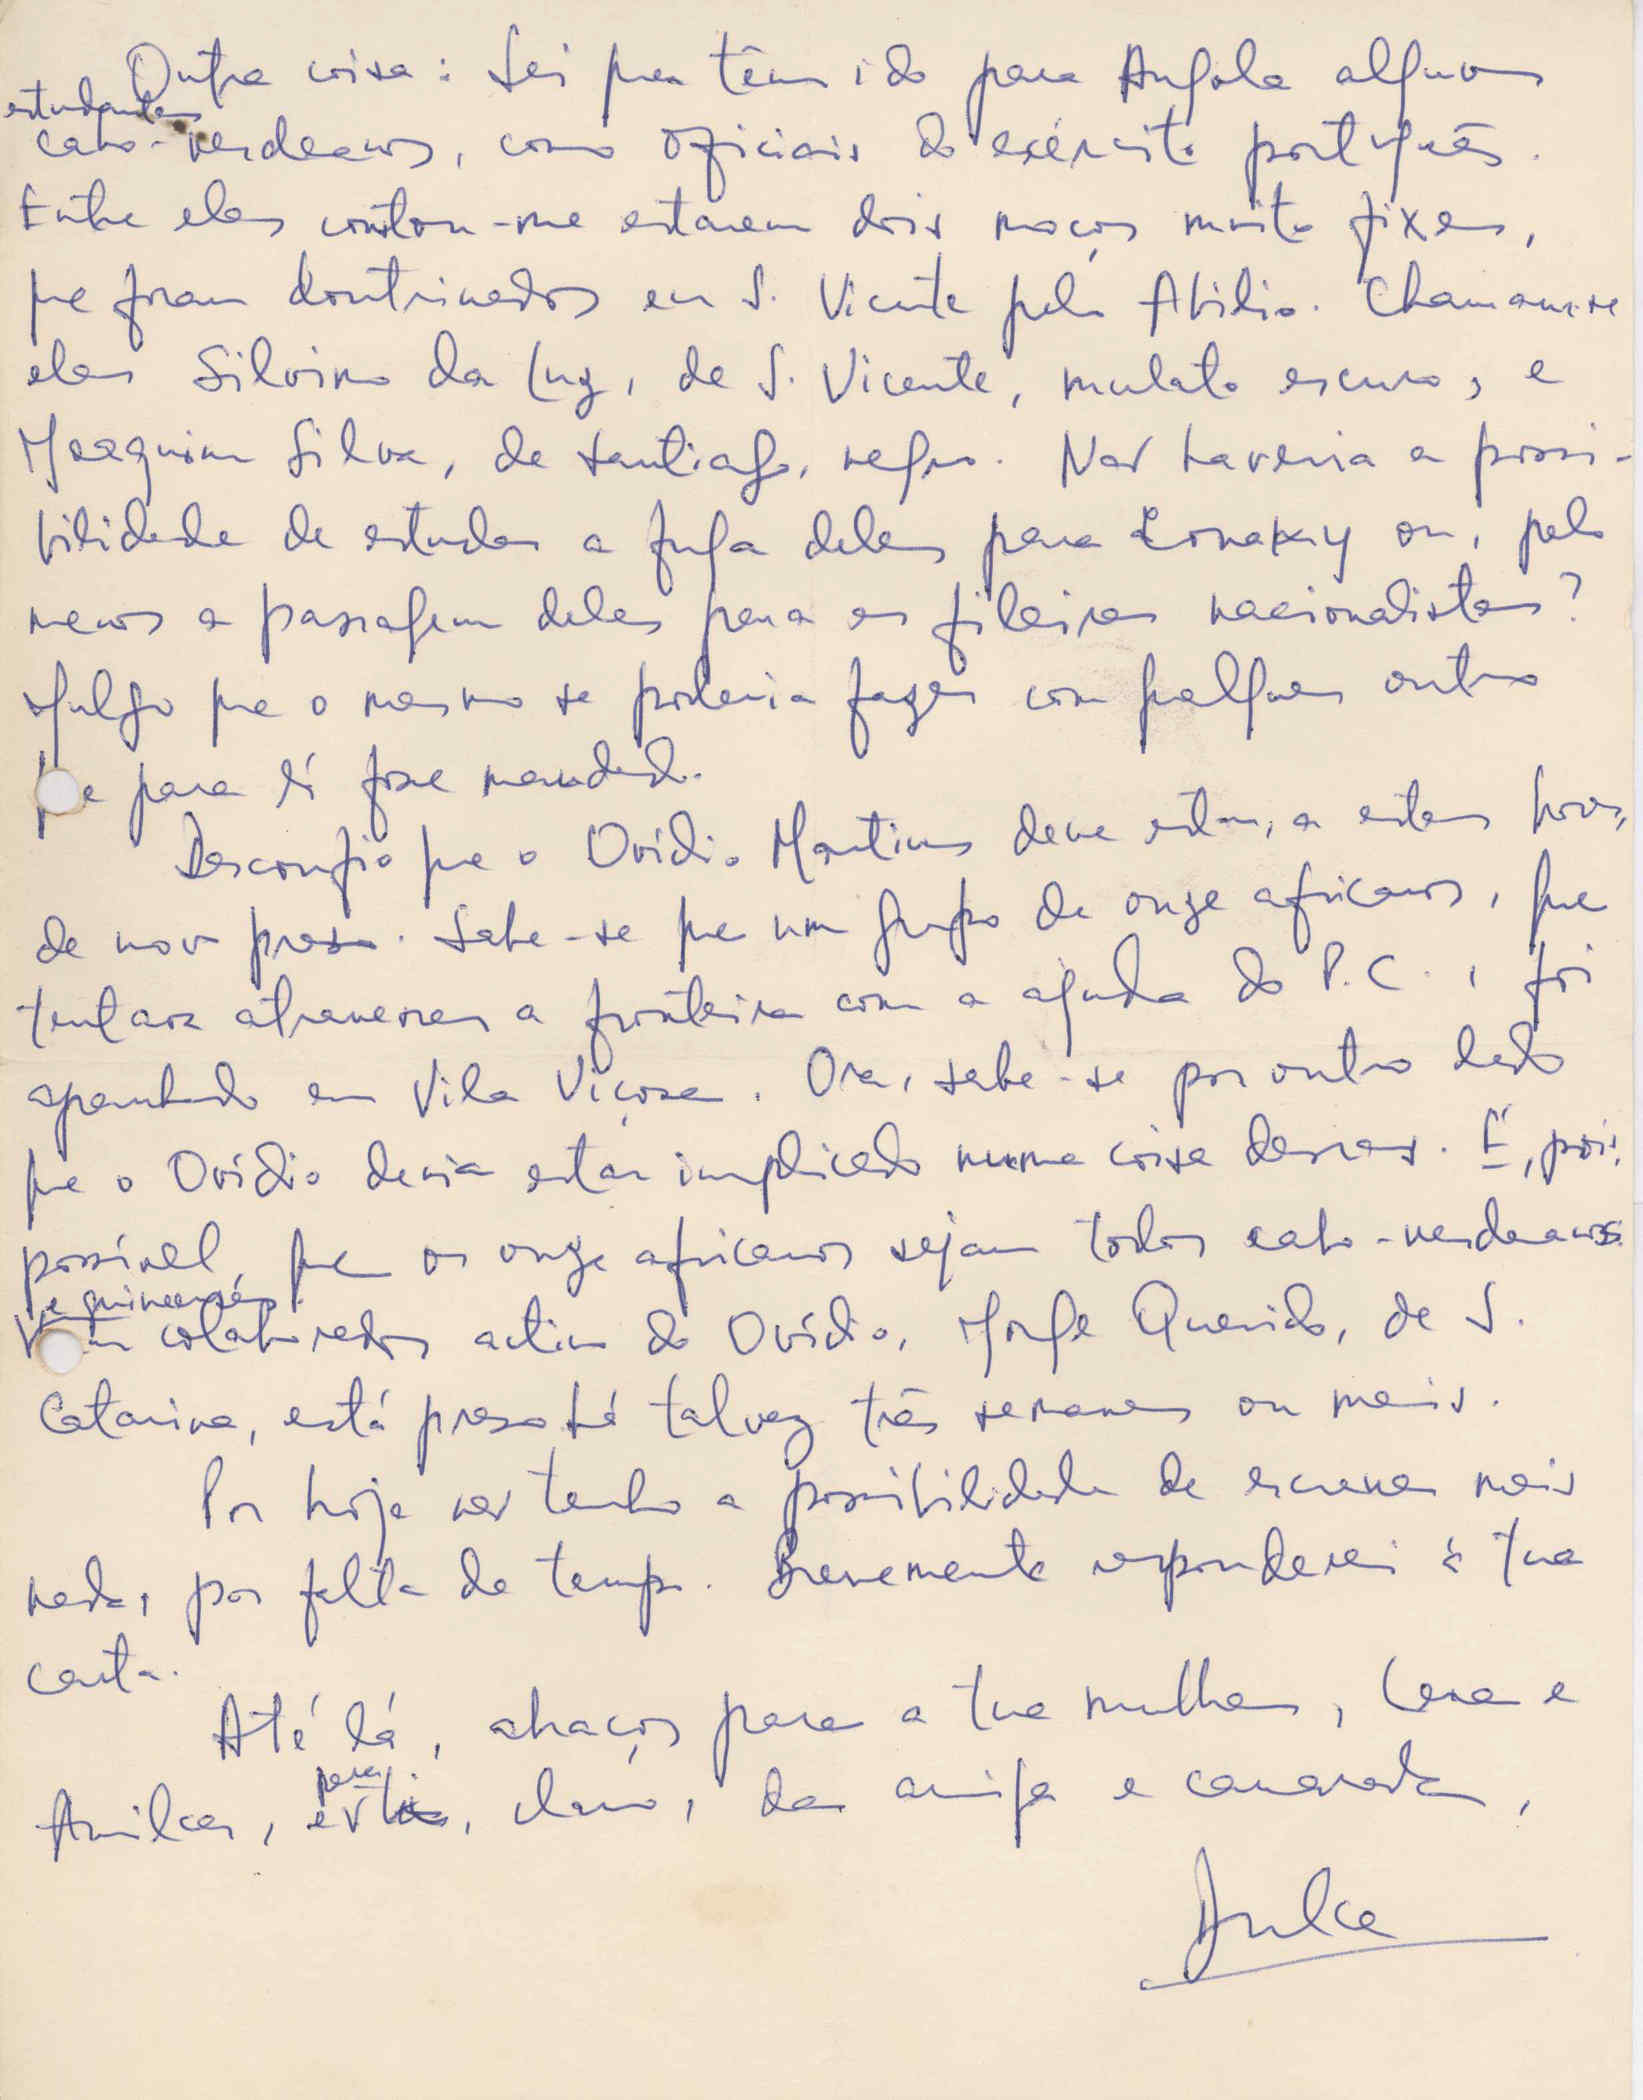 Outra coisa: Sei que têm ido para Angola alguns
estudantes
cabo-verdeanos, como oficiais do exército português.
Entre eles constou-me estarem dois moços muito fixes,
que foram doutrinados em S. Vicente pelo Abílio. Chamam-se
eles Silvino da Luz, de S. Vicente, mulato escuro, e
Joaquim Silva, de Santiago, negro. Não haveria a possi-
bilidade de estudar a fuga deles para Conakry ou, pelo
menos a passagem deles para as fileiras nacionalistas?
Julgo que o mesmo se poderia fazer com qualquer outro
que para lá fosse mandado.
Desconfio que o Ovídio Martins deve estar, a estas horas,
de novo preso. Sabe-se que um grupo de onze africanos, que
tentava atravessar a fronteira com a ajuda do P.C., foi
apanhado em Vila Viçosa. Ora, sabe-se por outro lado
que o Ovídio devia estar implicado numa coisa dessas. É, pois,
possível, que os onze africanos sejam todos cabo-verdeanos
e guineenses.
Um colaborador activo do Ovídio, Jorge Querido, de S.
Catarina, está preso há talvez três semanas ou mais.
Por hoje não tenho a possibilidade de escrever mais
nada, por falta de tempo. Brevemente responderei à tua
carta.
Até lá, abraços para a tua mulher, Lena e
para
Amílcar, e ti, claro, da amiga e camarada,
Dulce